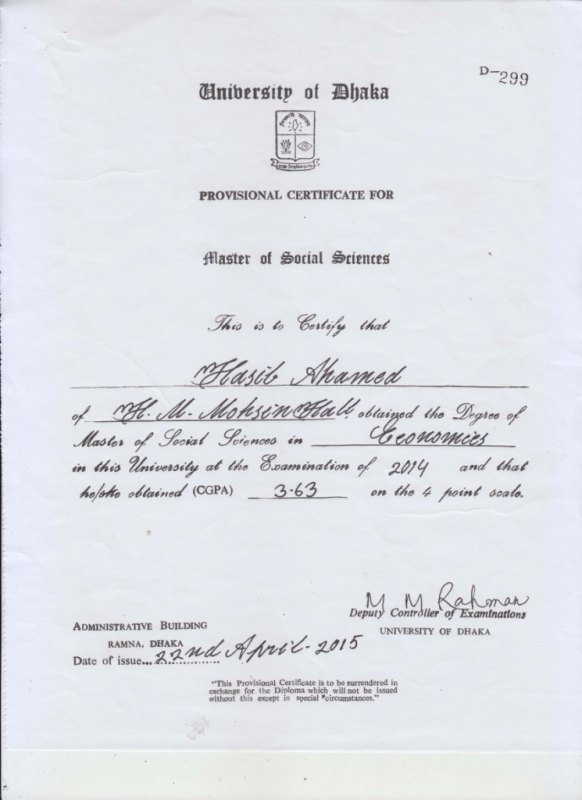 D-299
University of Dhaka
PROVISIONAL CERTIFICATE FOR
Master of Social Sciences
This is to Certify that
Hasib Ahamed
of H. M. Mohsin Hall obtained the Degree of
Master of Social Sciences in Economics
in this University at the Examination of 2014 and that
he/she obtained (CGPA) 3.63 on the 4 point scale.
M M Rahman
Deputy Controller of Examinations
UNIVERSITY OF DHAKA
ADMINISTRATIVE BUILDING
RAMNA, DHAKA
Date of issue... 22nd April-2015
"This Provisional Certificate is to be surrendered in
exchange for the Diploma which will not be issued
without this except in special circumstances."